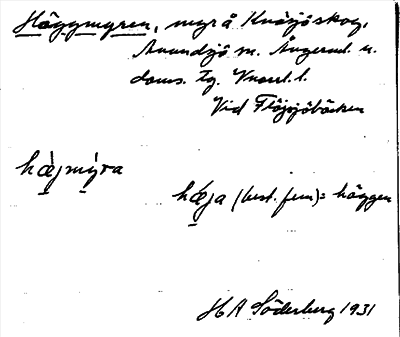 Häggmyren, myr å Knösjöskog,
Anundsjö sn. Ångerml. n.
doms. Tg. Knorrl. l.
Vid Flåsjöbäcken
hæ̀jmỳra
hǽja (best. fem) = häggen
H A Söderberg 1931